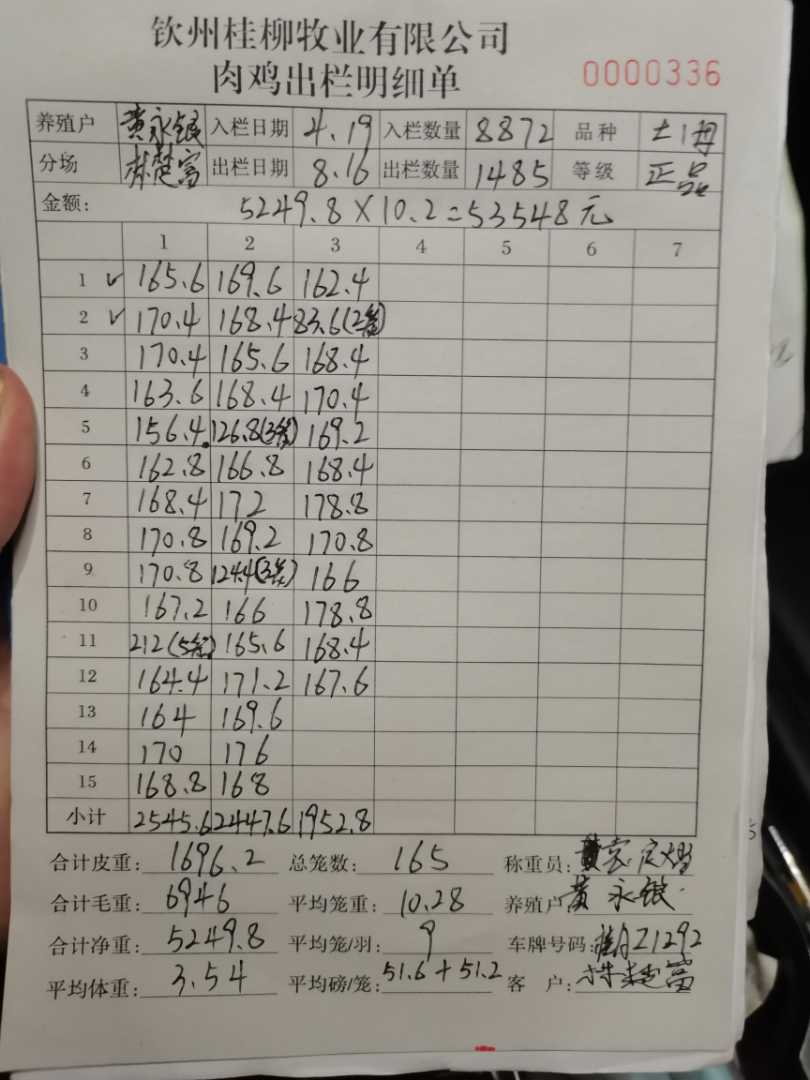 钦州桂柳牧业有限公司
肉鸡出栏明细单 0000336
养殖户 黄永银 入栏日期 4.19 入栏数量 8872 品种 土1母
分场 林楚富 出栏日期 8.16 出栏数量 1485 等级 正品
金额: 5249.8×10.2=53548元
1 2 3 4 5 6 7
1 ✓ 165.6 169.6 162.4
2 ✓ 170.4 168.4 83.6(2笼)
3 170.4 165.6 168.4
4 163.6 168.4 170.4
5 156.4 126.8(3笼) 169.2
6 162.8 166.8 168.4
7 168.4 172 178.8
8 170.8 169.2 170.8
9 170.8 124.4(3笼) 166
10 167.2 166 178.8
11 212(5笼) 165.6 168.4
12 164.4 171.2 167.6
13 164 169.6
14 170 176
15 168.8 168
小计 2545.6 2447.6 1952.8
合计皮重: 1696.2 总笼数: 165 称重员:
合计毛重: 6946 平均笼重: 10.28 养殖户 黄永银
合计净重: 5249.8 平均笼/羽: 9 车牌号码: Z1292
平均体重: 3.54 平均磅/笼: 51.6+51.2 客户: 林楚富